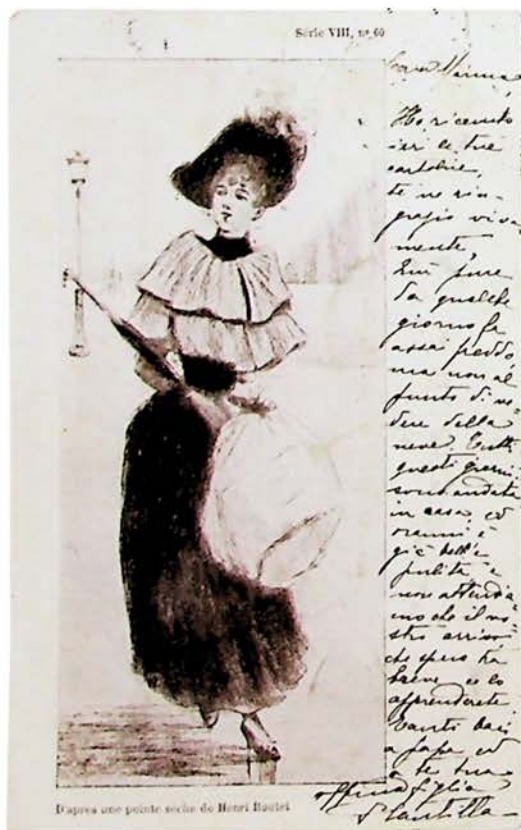 Série VIII, nº 60
Cara Mimma,
Ho ricevuto
ieri le tue
cartoline,
te ne rin-
grazio viva-
mente,
Qui pure
da qualche
giorno fa
assai freddo
ma non al
punto di ve-
dere della
neve. Tutti
questi giorni
sono andata
in casa ed
oramai è
già bell'e
pulita e
non attendia-
mo che il no-
stro arrivo
che spero tra
breve ve lo
apprenderete.
Tanti baci
a papà ed
a te tua
aff.ma figlia
D'après une pointe sèche de Henri Boutet